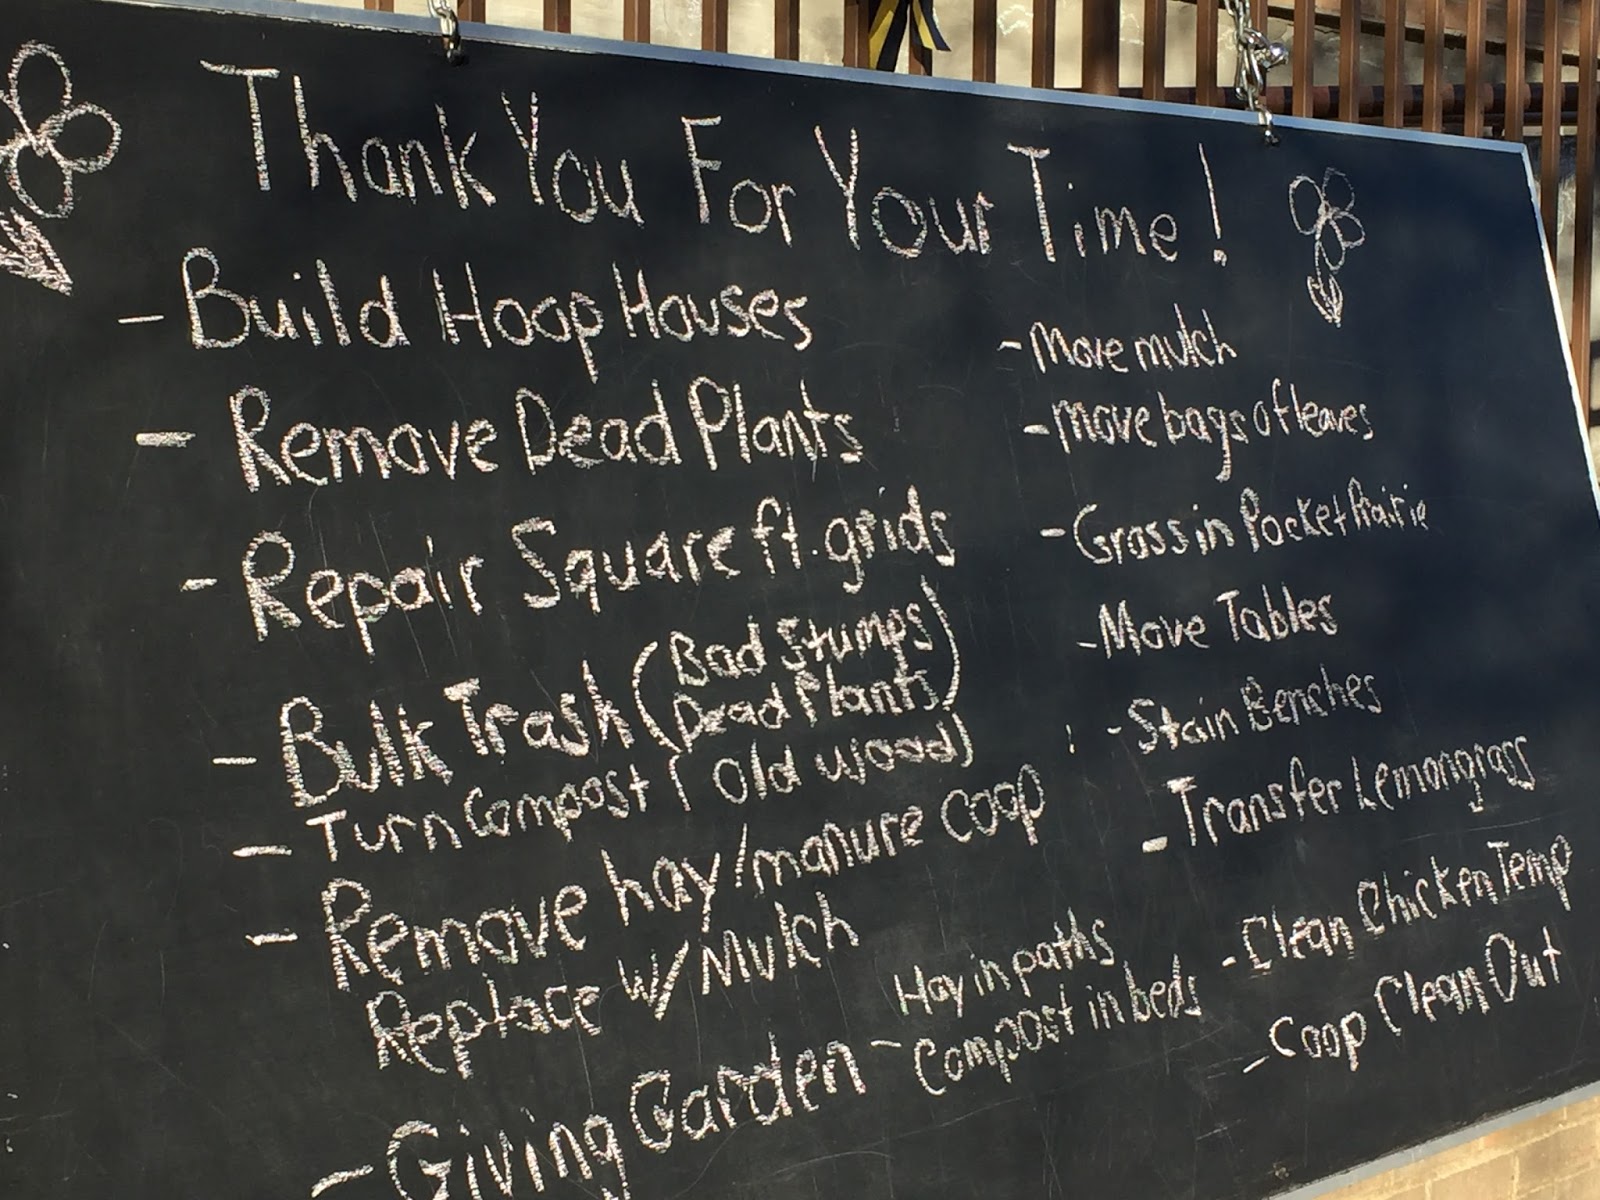 Thank You For Your Time!
- Build Hoop Houses
- Remove Dead Plants
- Repair Square ft. grids
- Bulk Trash (Bad Stumps)
Dead Plants
(Old wood)
- Turn Compost
- Remove hay/manure coop
Replace w/ Mulch
- Giving Garden - Hay in paths
Compost in beds
- Move mulch
- Move bags of leaves
- Grass in Pocket Prairie
- Move Tables
- Stain Benches
- Transfer Lemongrass
- Clean Chicken Temp
- Coop Clean Out